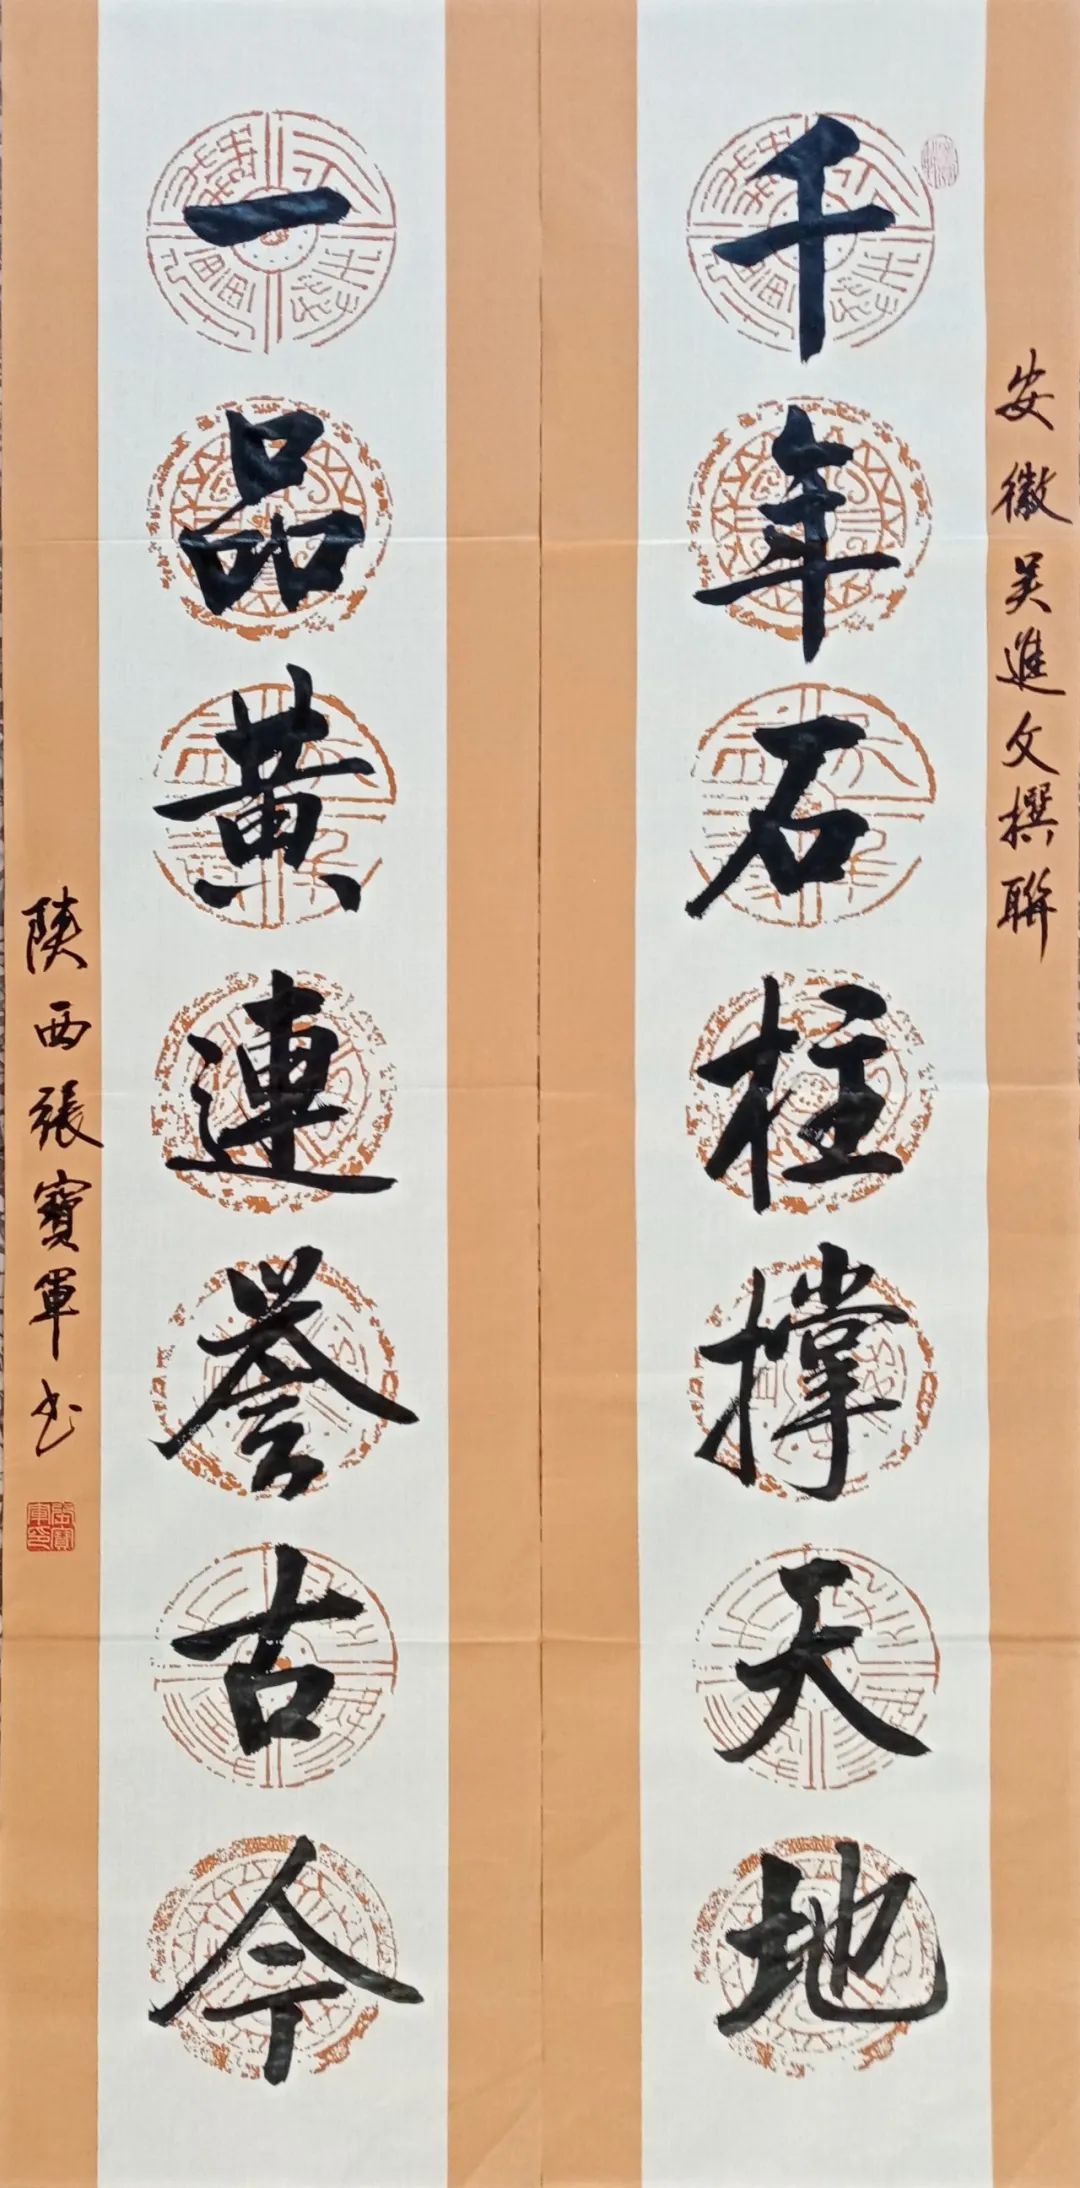 安徽吴進文撰聯
千年石柱撑天地
一品黄連誉古今
陝西張寶軍书